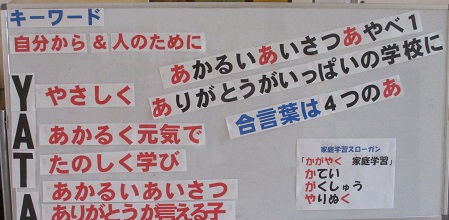 キーワード
自分から & 人のために
あかるいあいさつあやべ1
ありがとうがいっぱいの学校に
合言葉は4つのあ
Y やさしく
A あかるく元気で
T たのしく学び
A あかるいあいさつ
ありがとうが言える子
家庭学習スローガン
「かがやく 家庭学習」
かてい
がくしゅう
やりぬく